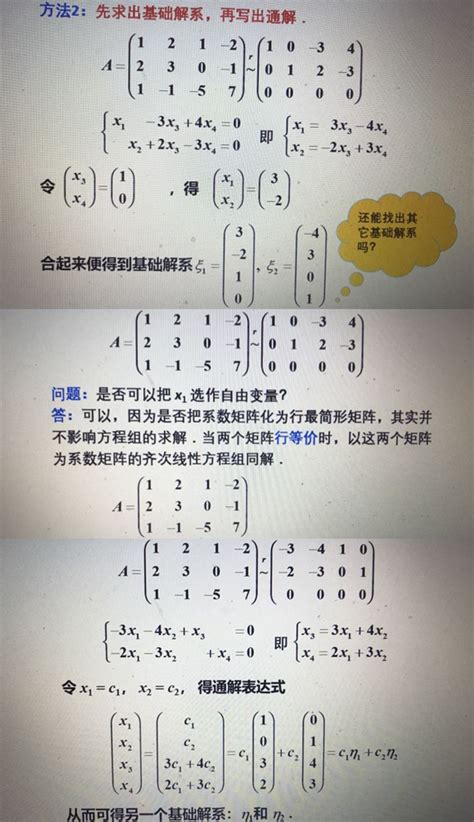 方法2：先求出基础解系，再写出通解．
A = ( 1 2 1 −2 ; 2 3 0 −1 ; 1 −1 −5 7 ) r ~ ( 1 0 −3 4 ; 0 1 2 −3 ; 0 0 0 0 )
{ x₁ − 3x₃ + 4x₄ = 0 ; x₂ + 2x₃ − 3x₄ = 0 即 { x₁ = 3x₃ − 4x₄ ; x₂ = −2x₃ + 3x₄
令 ( x₃ ; x₄ ) = ( 1 ; 0 ) ，得 ( x₁ ; x₂ ) = ( 3 ; −2 )
还能找出其
它基础解系
吗？
合起来便得到基础解系 ξ₁ = ( 3 ; −2 ; 1 ; 0 ), ξ₂ = ( −4 ; 3 ; 0 ; 1 )
A = ( 1 2 1 −2 ; 2 3 0 −1 ; 1 −1 −5 7 ) r ~ ( 1 0 −3 4 ; 0 1 2 −3 ; 0 0 0 0 )
问题：是否可以把 x₁ 选作自由变量？
答：可以，因为是否把系数矩阵化为行最简形矩阵，其实并
不影响方程组的求解．当两个矩阵行等价时，以这两个矩阵
为系数矩阵的齐次线性方程组同解．
A = ( 1 2 1 −2 ; 2 3 0 −1 ; 1 −1 −5 7 )
A = ( 1 2 1 −2 ; 2 3 0 −1 ; 1 −1 −5 7 ) r ~ ( −3 −4 1 0 ; −2 −3 0 1 ; 0 0 0 0 )
{ −3x₁ − 4x₂ + x₃ = 0 ; −2x₁ − 3x₂ + x₄ = 0 即 { x₃ = 3x₁ + 4x₂ ; x₄ = 2x₁ + 3x₂
令 x₁ = c₁， x₂ = c₂， 得通解表达式
( x₁ ; x₂ ; x₃ ; x₄ ) = ( c₁ ; c₂ ; 3c₁ + 4c₂ ; 2c₁ + 3c₂ ) = c₁ ( 1 ; 0 ; 3 ; 2 ) + c₂ ( 0 ; 1 ; 4 ; 3 ) = c₁η₁ + c₂η₂
从而可得另一个基础解系：η₁和 η₂．